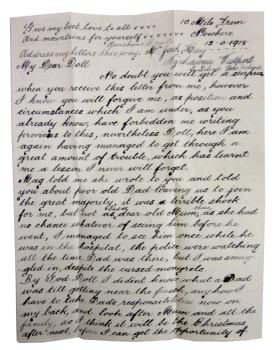 Give my best love to all
And mountains for yourself
Address my letters this way
10 Mile From
Nowhere
12-0-1918
My Dear Doll
No doubt you will get a surprise
when you receive this letter from me, however
I know you will forgive me, as position and
circumstances which I am under, as you
already know have forbidden me writing
previous to this, nevertheless Doll, here I am
again having managed to get through a
great amount of trouble, which has learnt
me a lesson I never will forget.
Mag told me she wrote to you and told
you about poor old Dad leaving us to join
the great majority, it was a terrible shock
for me, but not as dear old Mum, as she had
no chance whatever of seeing him before he
went, I managed to see him once while he
was in the hospital, the police were watching
all the time Dad was there, but I was smug-
gled in, despite the cursed mongrels.
By God Doll I dident know what a Dad
was till getting near the finish, anyhow I
have to take Dads responsibilities now on
my back, and look after Mum and all the
family, so I think it will be the Christmas
after next before I can get the opportunity of